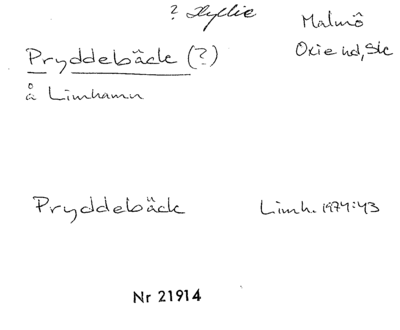 ? Hyllie
Malmö
Pryddebäck (?)
Oxie hd, Sk
å Limhamn
Pryddebäck
Limh. 1974:43
Nr 21914